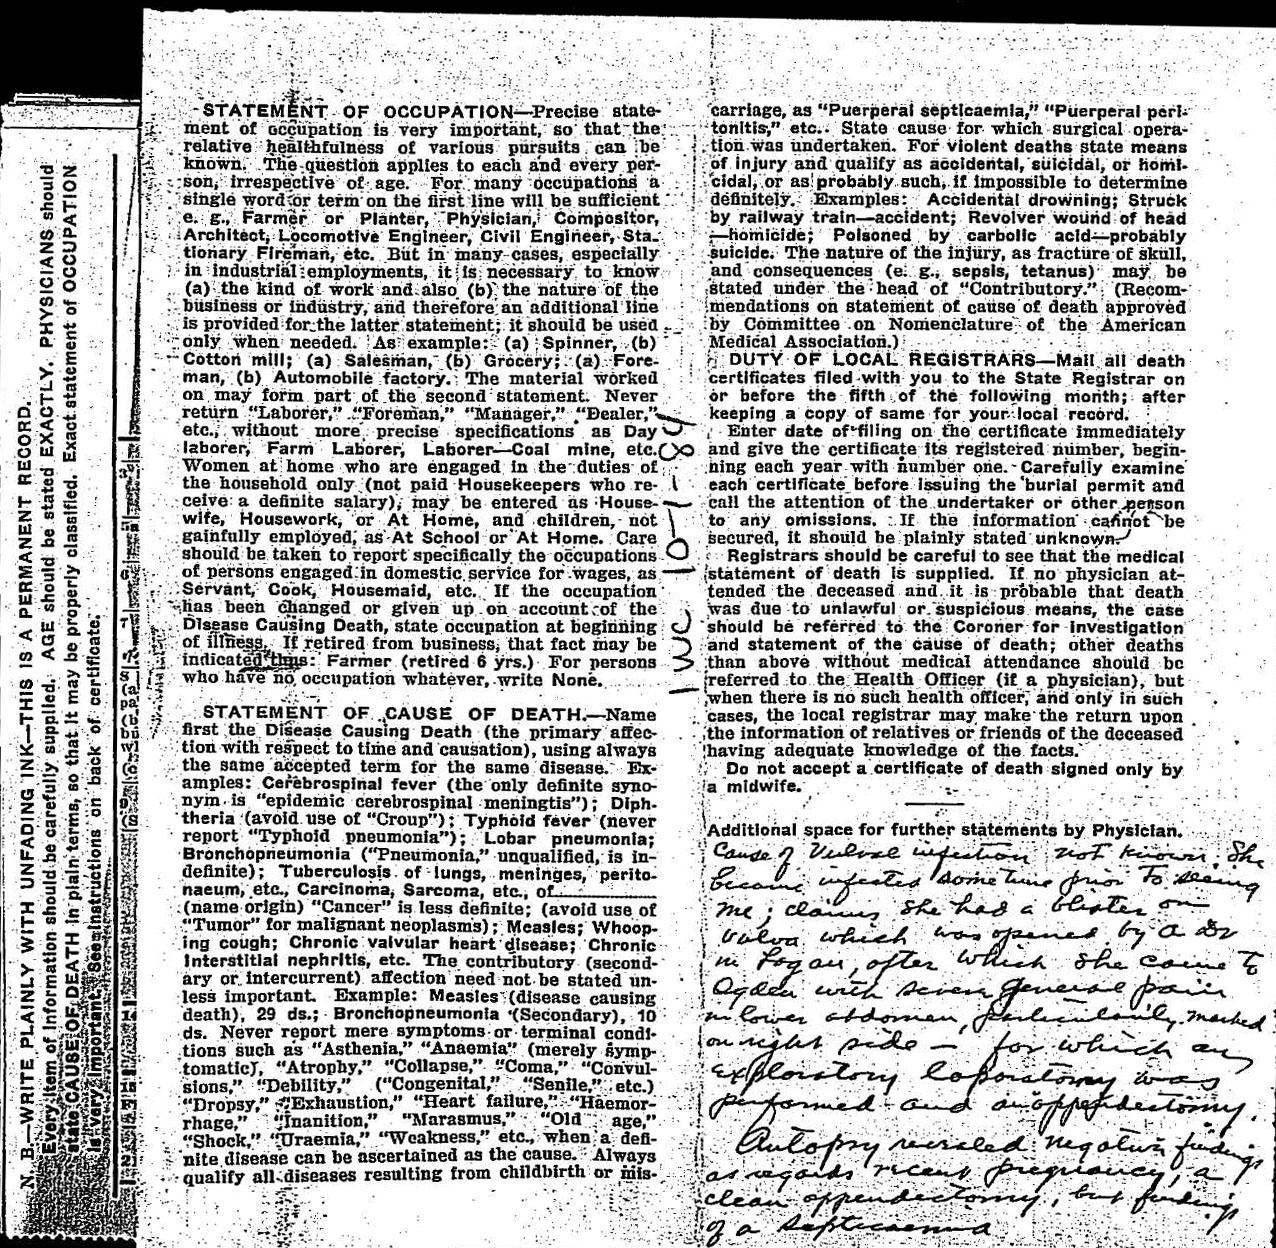 N. B.—WRITE PLAINLY WITH UNFADING INK—THIS IS A PERMANENT RECORD.
Every item of information should be carefully supplied. AGE should be stated EXACTLY. PHYSICIANS should
state CAUSE OF DEATH in plain terms, so that it may be properly classified. Exact statement of OCCUPATION
is very important. See instructions on back of certificate.
STATEMENT OF OCCUPATION—Precise state-
ment of occupation is very important, so that the
relative healthfulness of various pursuits can be
known. The question applies to each and every per-
son, irrespective of age. For many occupations a
single word or term on the first line will be sufficient
e. g., Farmer or Planter, Physician, Compositor,
Architect, Locomotive Engineer, Civil Engineer, Sta-
tionary Fireman, etc. But in many cases, especially
in industrial employments, it is necessary to know
(a) the kind of work and also (b) the nature of the
business or industry, and therefore an additional line
is provided for the latter statement; it should be used
only when needed. As example: (a) Spinner, (b)
Cotton mill; (a) Salesman, (b) Grocery; (a) Fore-
man, (b) Automobile factory. The material worked
on may form part of the second statement. Never
return "Laborer," "Foreman," "Manager," "Dealer,"
etc., without more precise specifications as Day
laborer, Farm Laborer, Laborer—Coal mine, etc.
Women at home who are engaged in the duties of
the household only (not paid Housekeepers who re-
ceive a definite salary), may be entered as House-
wife, Housework, or At Home, and children, not
gainfully employed, as At School or At Home. Care
should be taken to report specifically the occupations
of persons engaged in domestic service for wages, as
Servant, Cook, Housemaid, etc. If the occupation
has been changed or given up on account of the
Disease Causing Death, state occupation at beginning
of illness. If retired from business, that fact may be
indicated thus: Farmer (retired 6 yrs.) For persons
who have no occupation whatever, write None.
STATEMENT OF CAUSE OF DEATH.—Name
first the Disease Causing Death (the primary affec-
tion with respect to time and causation), using always
the same accepted term for the same disease. Ex-
amples: Cerebrospinal fever (the only definite syno-
nym is "epidemic cerebrospinal meningtis"); Diph-
theria (avoid use of "Croup"); Typhoid fever (never
report "Typhoid pneumonia"); Lobar pneumonia;
Bronchopneumonia ("Pneumonia," unqualified, is in-
definite); Tuberculosis of lungs, meninges, perito-
naeum, etc., Carcinoma, Sarcoma, etc., of
(name origin) "Cancer" is less definite; (avoid use of
"Tumor" for malignant neoplasms); Measles; Whoop-
ing cough; Chronic valvular heart disease; Chronic
interstitial nephritis, etc. The contributory (second-
ary or intercurrent) affection need not be stated un-
less important. Example: Measles (disease causing
death), 29 ds.; Bronchopneumonia (Secondary), 10
ds. Never report mere symptoms or terminal condi-
tions such as "Asthenia," "Anaemia" (merely symp-
tomatic), "Atrophy," "Collapse," "Coma," "Convul-
sions," "Debility," ("Congenital," "Senile," etc.)
"Dropsy," "Exhaustion," "Heart failure," "Haemor-
rhage," "Inanition," "Marasmus," "Old age,"
"Shock," "Uraemia," "Weakness," etc., when a defi-
nite disease can be ascertained as the cause. Always
qualify all diseases resulting from childbirth or mis-
1WC 10-1-84
carriage, as "Puerperal septicaemia," "Puerperal peri-
tonitis," etc. State cause for which surgical opera-
tion was undertaken. For violent deaths state means
of injury and qualify as accidental, suicidal, or homi-
cidal, or as probably such, if impossible to determine
definitely. Examples: Accidental drowning; Struck
by railway train—accident; Revolver wound of head
—homicide; Poisoned by carbolic acid—probably
suicide. The nature of the injury, as fracture of skull,
and consequences (e. g., sepsis, tetanus) may be
stated under the head of "Contributory." (Recom-
mendations on statement of cause of death approved
by Committee on Nomenclature of the American
Medical Association.)
DUTY OF LOCAL REGISTRARS—Mail all death
certificates filed with you to the State Registrar on
or before the fifth of the following month; after
keeping a copy of same for your local record.
Enter date of filing on the certificate immediately
and give the certificate its registered number, begin-
ning each year with number one. Carefully examine
each certificate before issuing the burial permit and
call the attention of the undertaker or other person
to any omissions. If the information cannot be
secured, it should be plainly stated unknown.
Registrars should be careful to see that the medical
statement of death is supplied. If no physician at-
tended the deceased and it is probable that death
was due to unlawful or suspicious means, the case
should be referred to the Coroner for investigation
and statement of the cause of death; other deaths
than above without medical attendance should be
referred to the Health Officer (if a physician), but
when there is no such health officer, and only in such
cases, the local registrar may make the return upon
the information of relatives or friends of the deceased
having adequate knowledge of the facts.
Do not accept a certificate of death signed only by
a midwife.
Additional space for further statements by Physician.
Cause of Vulval infection not known. She
became infected sometime prior to seeing
me; claims she had a blister on
vulva which was opened by a dr
in Logan, after which she came to
Ogden with severe general pain
in lower abdomen, particularily marked
on right side — for which an
exploratory laporatomy was
performed and an appendectomy.
Autopsy revealed negative findings
as regards recent pregnancy, a
clean appendectomy, but findings
of a septicaemia